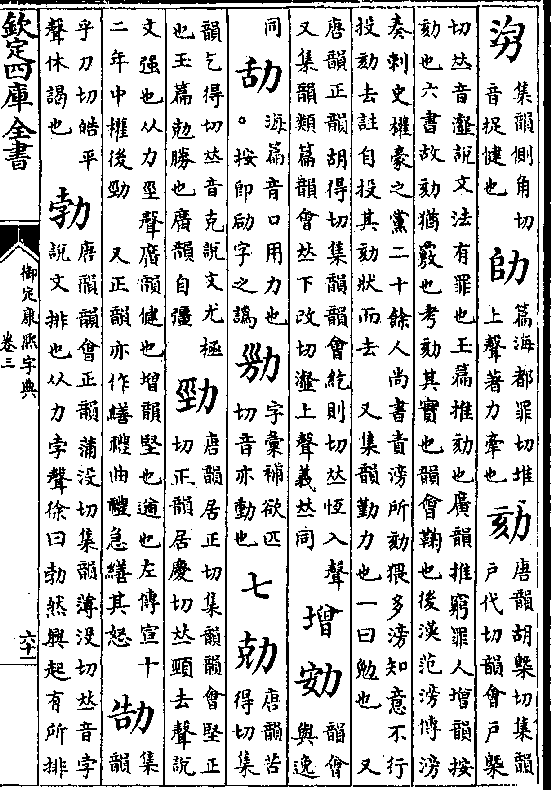 集韻側角切
音捉健也
篇海都罪切堆
上聲著力牽也
劾
唐韻胡槩切集韻
戸代切韻會戸槩
切𠀤音瀣說文法有罪也玉篇推劾也廣韻推窮罪人增韻按
劾也六書故劾猶覈也考劾其實也韻會鞫也後漢范滂傳滂
奏刺史權豪之黨二十餘人尚書責滂所劾猥多滂知意不行
投劾去註自投其劾狀而去 又集韻勤力也一曰勉也 又
唐韻正韻胡得切集韻韻會紇則切𠀤恆入聲
又集韻類篇韻會𠀤下改切瀣上聲義𠀤同
增
韻會
與逸
同
海篇音口用力也
。按即劶字之譌
字彙補欲匹
切音亦動也
七
勀
唐韻苦
得切集
韻乞得切𠀤音克說文尤極
也玉篇勉勝也廣韻自彊
勁
唐韻居正切集韻韻會堅正
切正韻居慶切𠀤頸去聲說
文强也从力巠聲廣韻健也增韻堅也遒也左傳宣十
二年中權後勁 又正韻亦作繕禮曲禮急繕其怒
勂
集
韻
乎刀切皓平
聲休謁也
勃
唐韻韻會正韻蒲没切集韻薄没切𠀤音字
說文排也从力孛聲徐曰勃然興起有所排
欽定四庫全書
御定康熙字典
卷三